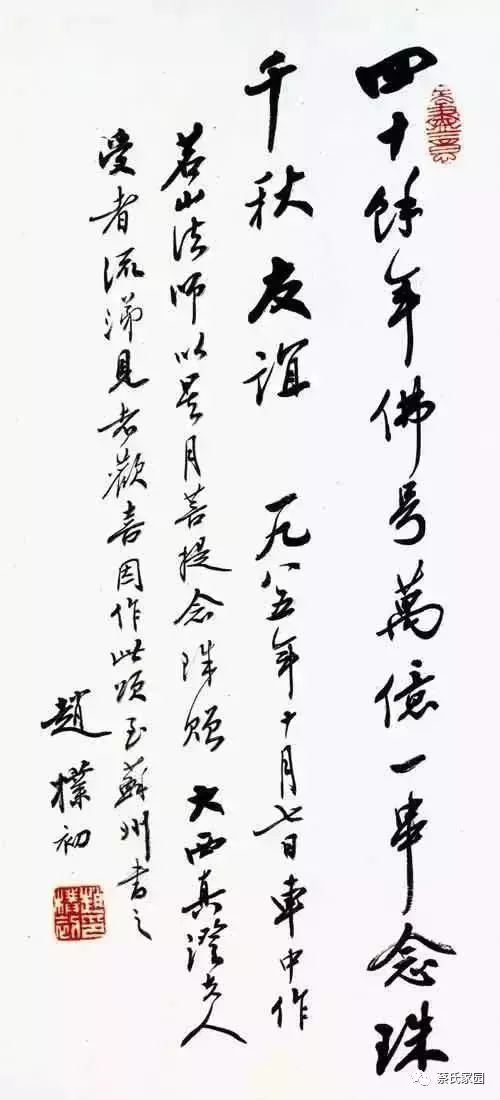 四十餘年佛号萬億一串念珠
千秋友誼 一九八五年十月七日車中作
茗山法师以星月菩提念珠贈 大西真澄夫人
受者流涕見者歡喜因作此頌至蘇州書之
趙樸初
趙樸初
蔡氏家园